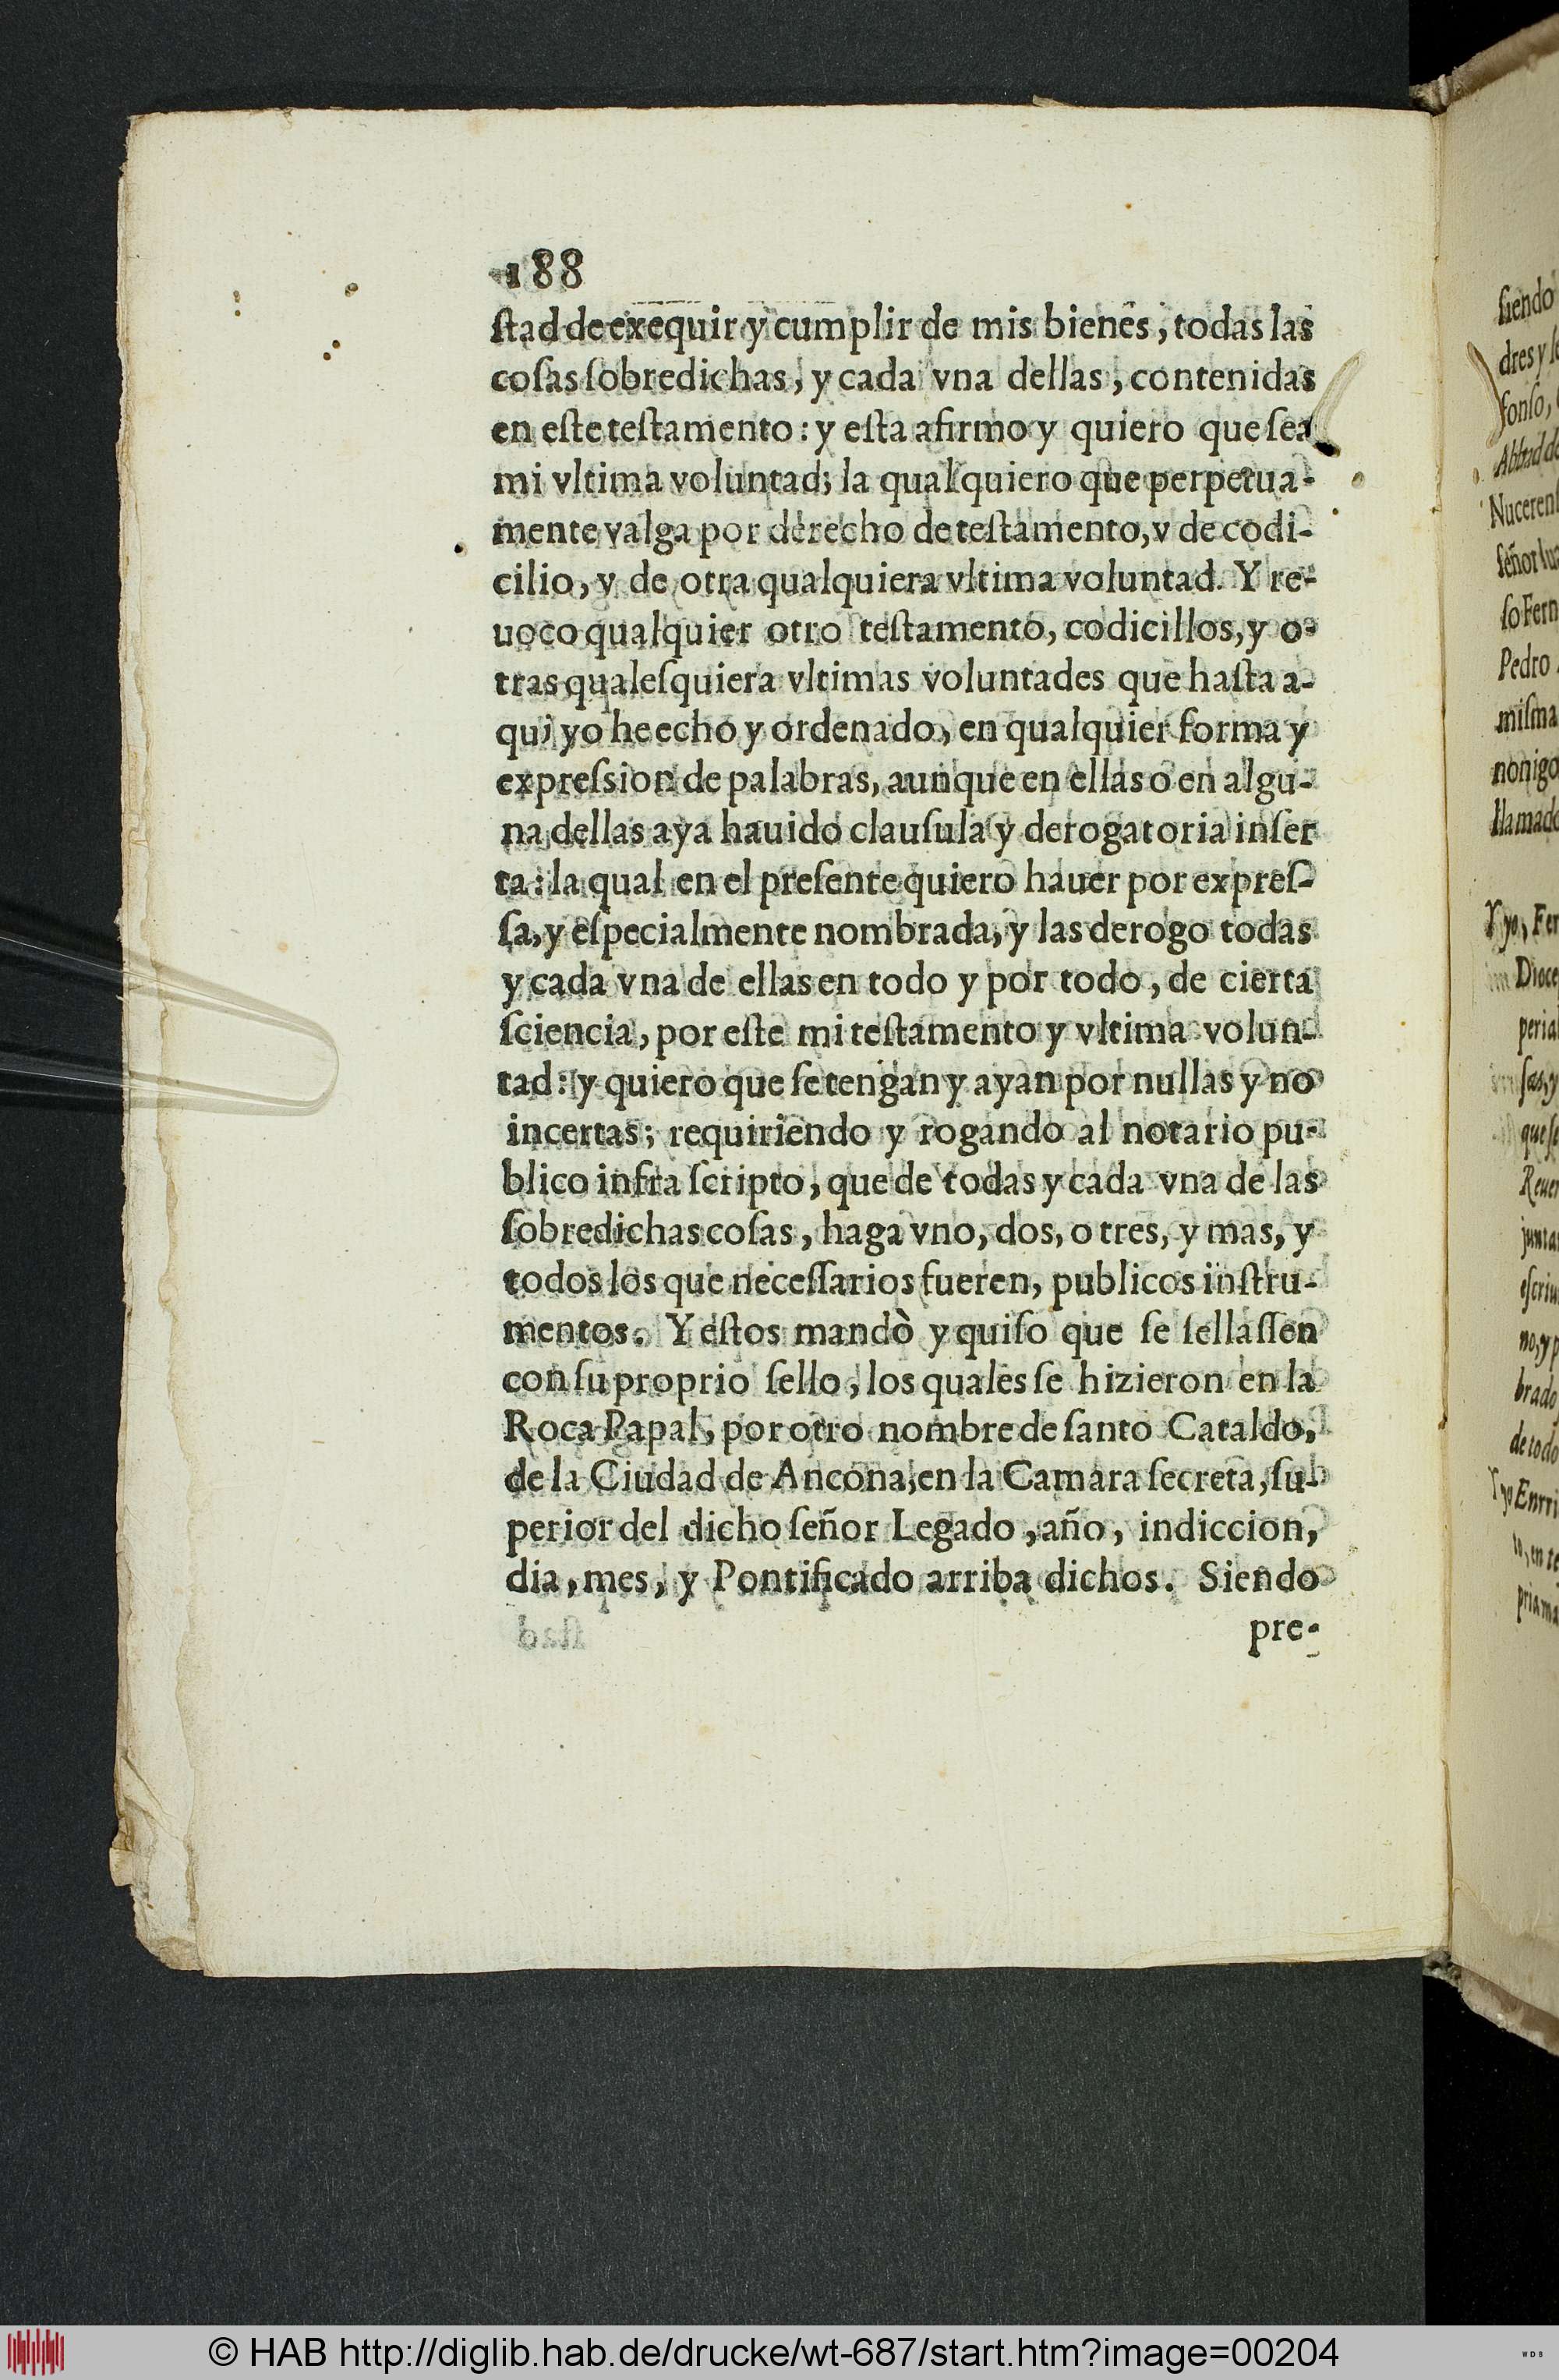 188
ſtad de exequir y cumplir de mis bienes, todas las
coſas ſobredichas, y cada vna dellas, contenidas
en eſte teſtamento: y eſta afirmo y quiero que ſea
mi vltima voluntad; la qual quiero que perpetua-
mente valga por derecho de teſtamento, v de codi-
cilio, y de otra qualquiera vltima voluntad. Y re-
uoco qualquier otro teſtamento, codicillos, y o-
tras qualeſquiera vltimas voluntades que haſta a-
qui yo he echo y ordenado, en qualquier forma y
expreſsion de palabras, aunque en ellas o en algu-
na dellas aya hauido clauſula y derogatoria inſer
ta: la qual en el preſente quiero hauer por expreſ-
ſa, y eſpecialmente nombrada, y las derogo todas
y cada vna de ellas en todo y por todo, de cierta
ſciencia, por eſte mi teſtamento y vltima volun-
tad: y quiero que ſe tengan y ayan por nullas y no
incertas; requiriendo y rogando al notario pu-
blico infra ſcripto, que de todas y cada vna de las
ſobredichas coſas, haga vno, dos, o tres, y mas, y
todos los que neceſſarios fueren, publicos inſtru-
mentos. Y eſtos mandò y quiſo que ſe ſellaſſen
con ſu proprio ſello, los quales ſe hizieron en la
Roca Papal, por otro nombre de ſanto Cataldo,
de la Ciudad de Ancona, en la Camara ſecreta, ſu-
perior del dicho ſeñor Legado, año, indiccion,
dia, mes, y Pontificado arriba dichos. Siendo
pre-
ſiendo
dres y
Abbad de
ſeñor
ſo Fern
Pedro
miſma
llamado
Y yo, Fer
Dioce
peria
que ſe
Reuer
junta
eſcriu
brado
de todo
Y yo Enrri
© HAB http://diglib.hab.de/drucke/wt-687/start.htm?image=00204
WDB